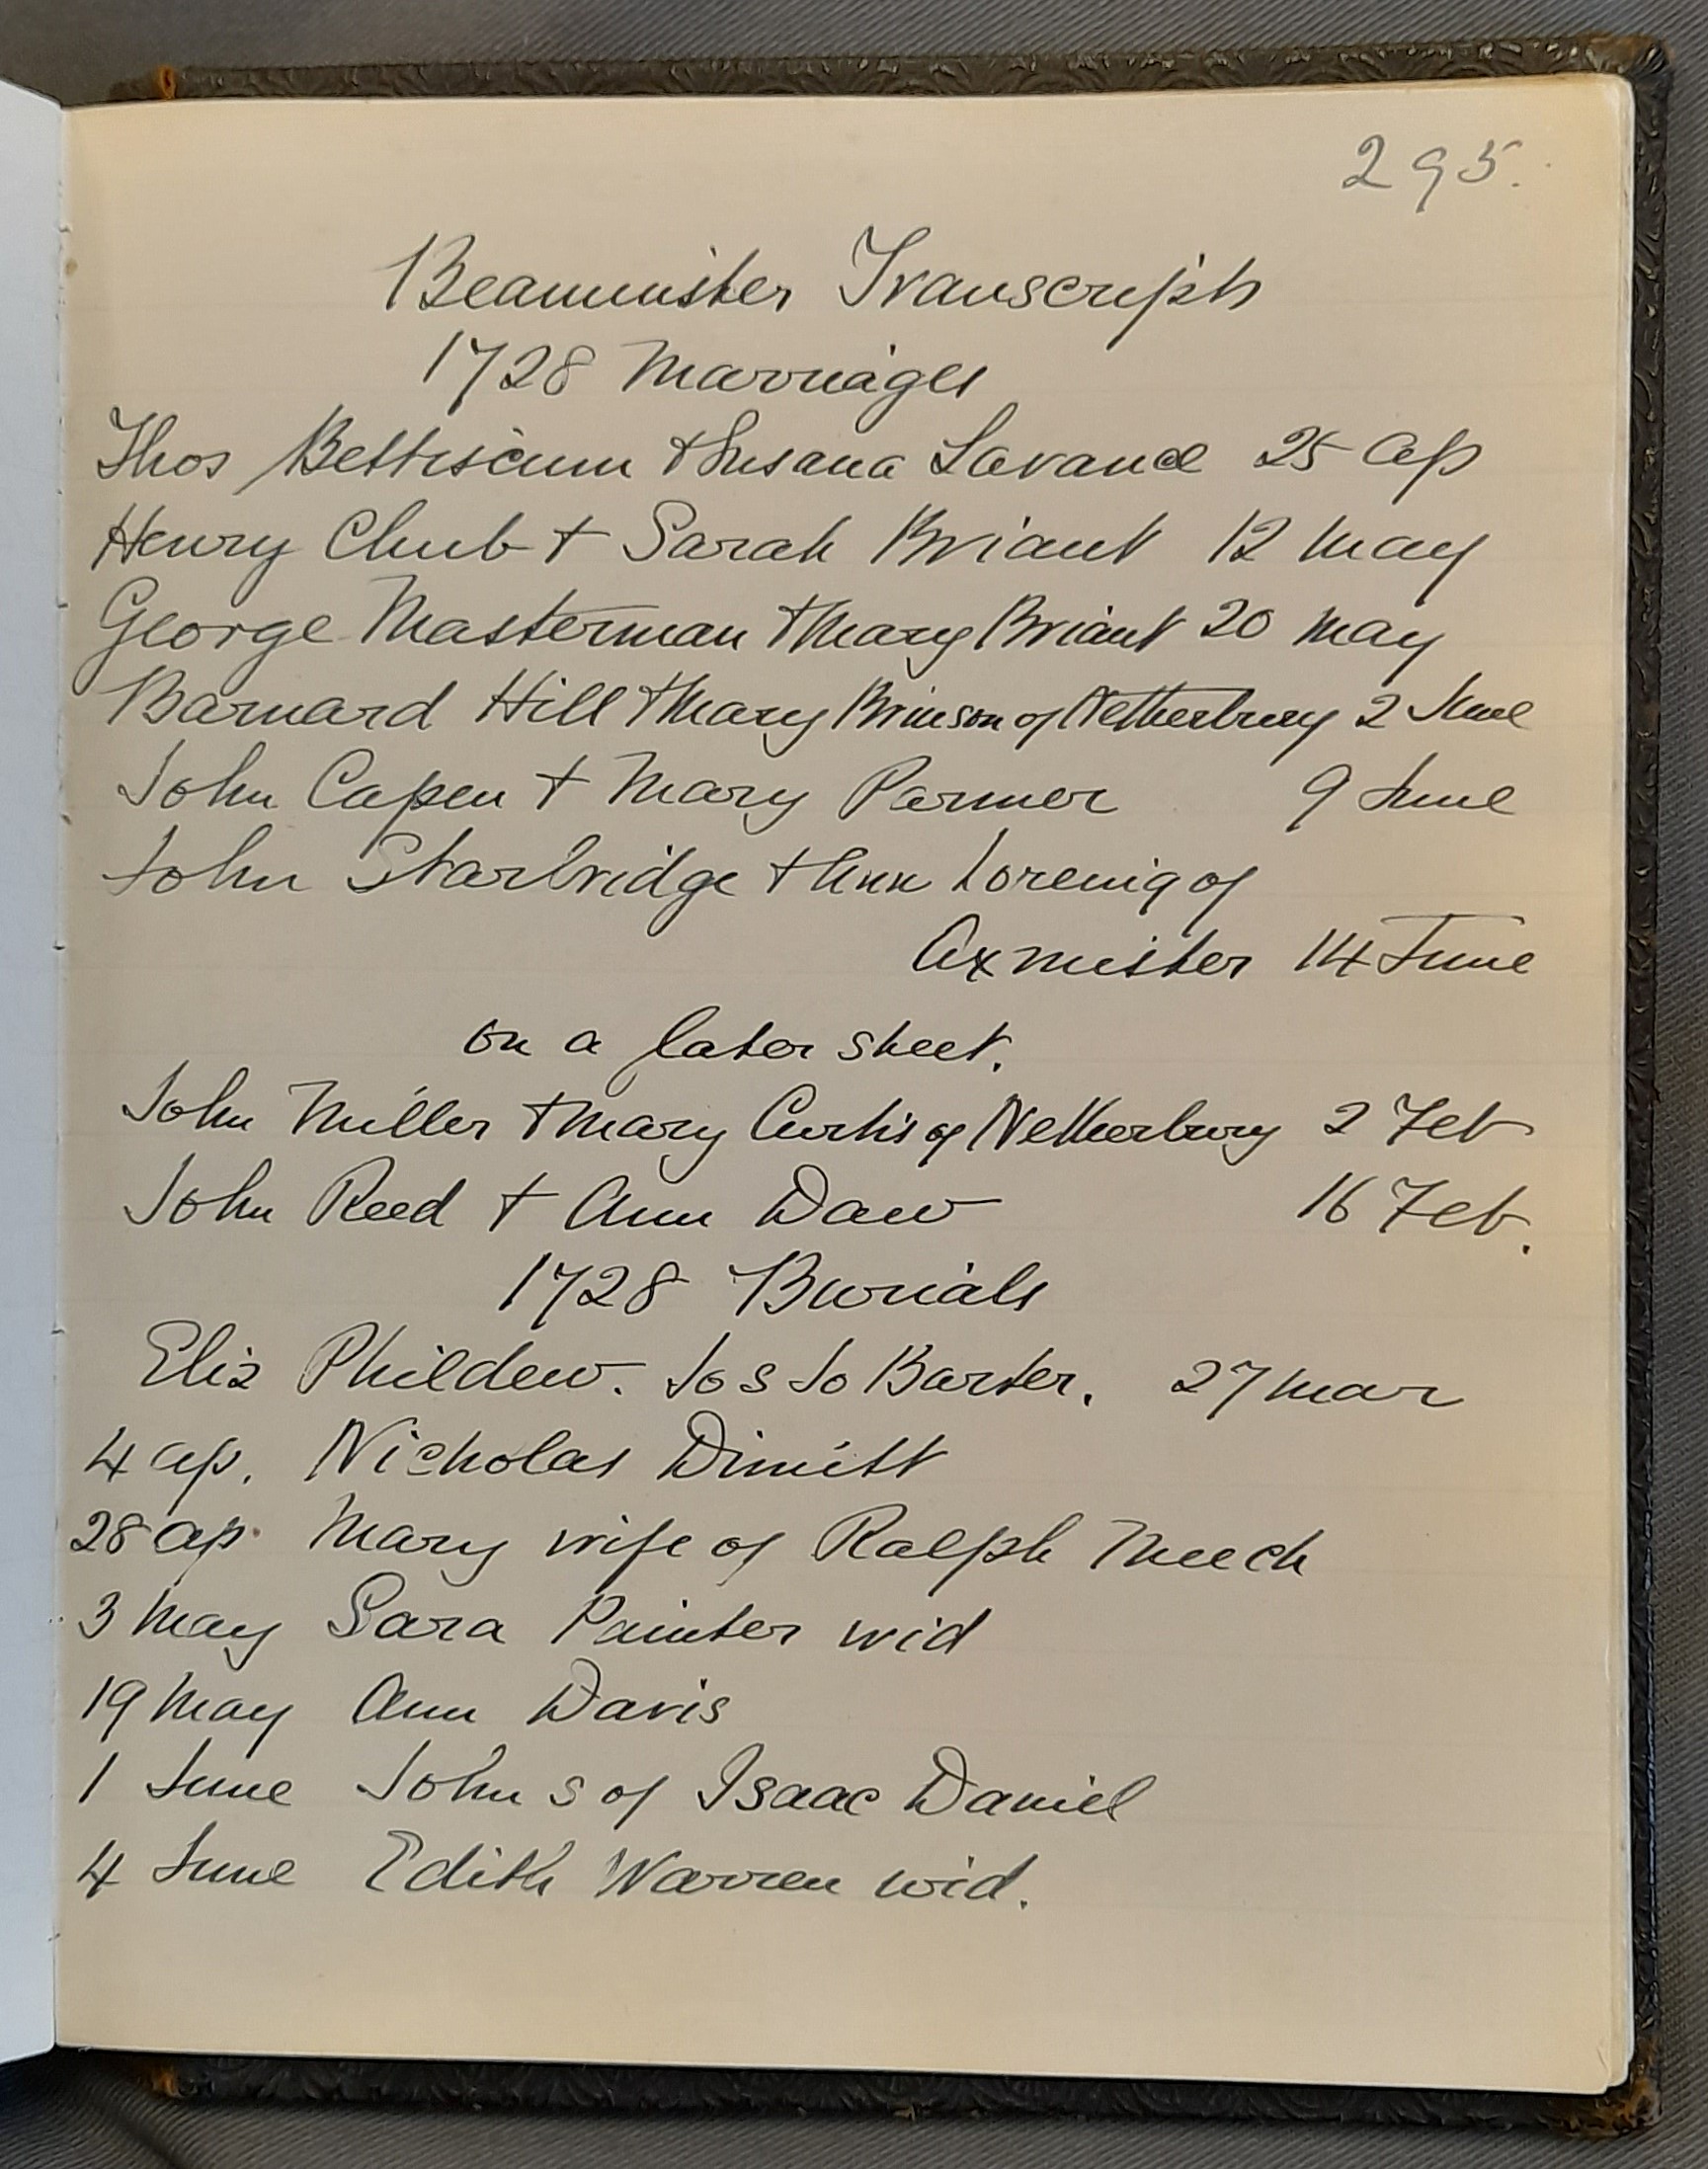 295.
Beaminster Transcripts
1728 Marriages
Thos Bettiscum + Susana Lavance 25 Ap
Henry Chub + Sarah Briant 12 May
George Masterman + Mary Briant 20 May
Barnard Hill + Mary Brinson of Netherbury 2 June
John Capen + Mary Parmer 9 June
John Starbridge + Ann of
Axmister 14 June
on a later sheet.
John Miller + Mary Curtis of Netherbury 2 Feb
John Reed + Ann Daw 16 Feb.
1728 Burials
Eliz Phildew. Jo s Jo Barter. 27 Mar
4 Ap. Nicholas Dimitt
28 Ap. Mary wife of Ralph Meech
3 May Sara Painter wid
19 May Ann Davis
1 June John s of Isaac Daniel
4 June Edith Warren wid.